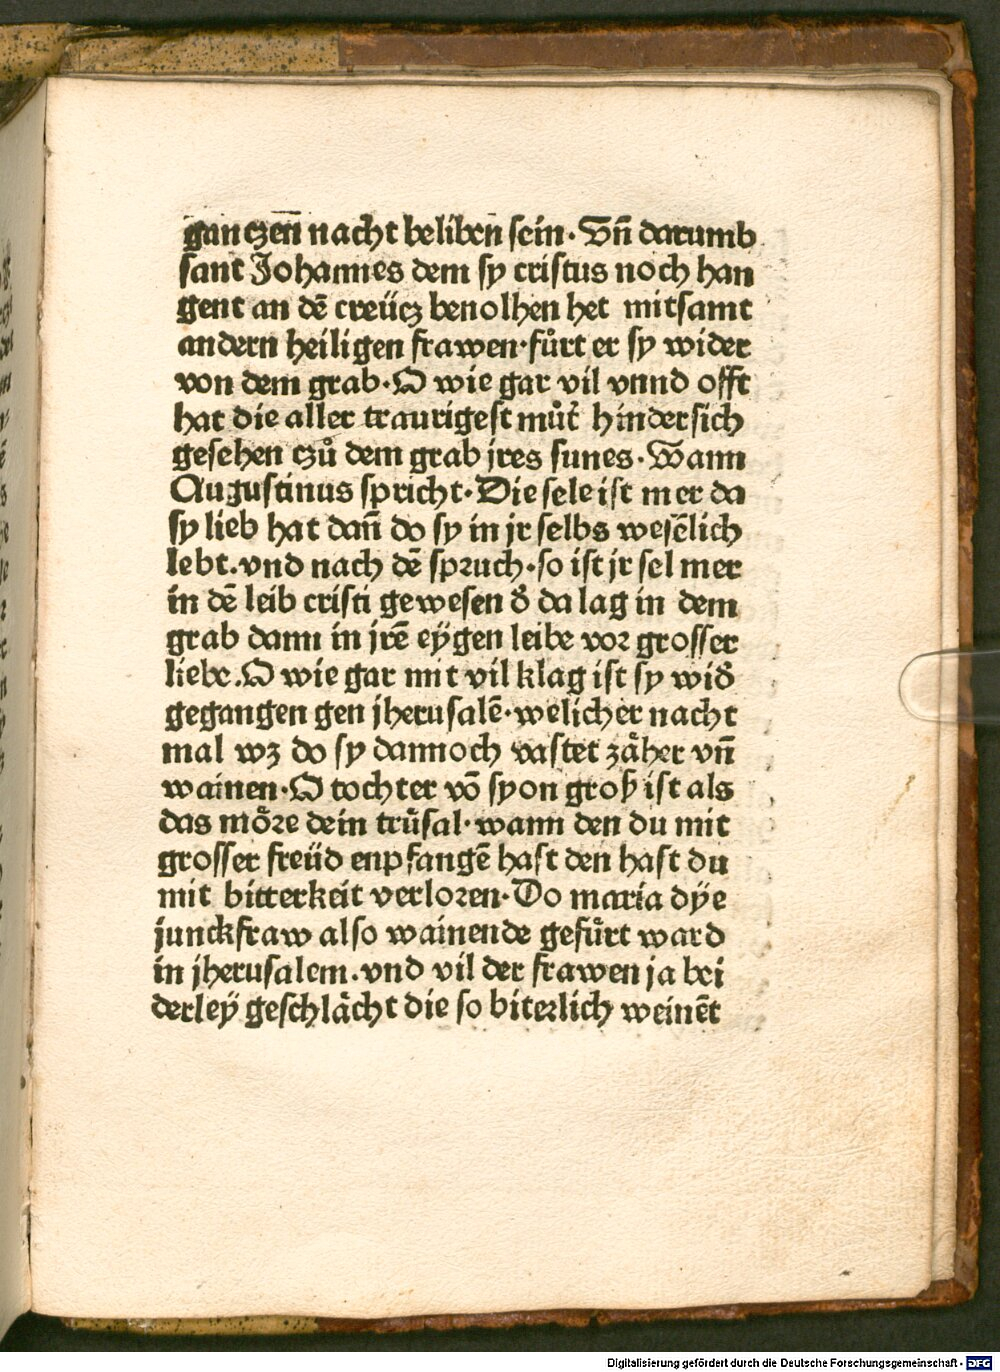 gan czen̄ nacht beliben sein· Vn̄ darumb
sant Johannes dem sy cristus noch han
gent an dē creücz beuolhen het mitsamt
andern heiligen frawen·fůrt er sy wider
von dem grab·O wie gar vil vnnd offt
hat die aller traurigest můt̄ hindersich
gesehen czů dem grab jres sunes·Wann
Augustinus spricht·Die sele ist mer da
sy lieb hat dan̄ do sy in jr selbs wesēlich
lebt.vnd nach dē spruch·so ist jr sel mer
in dē leib cristi gewesen d̕ da lag in dem
grab dann in jrē eÿgen leibe vor grosser
liebe.O wie gar mit vil klag ist sy wid̕
gegangen gen jherusalē·welicher nacht
mal wz do sy dannoch vastet zåher vn̄
wainen·O tochter vō syon groß ist als
das mőre dein trůsal·wann den du mit
grosser freüd enpfangē hast den hast du
mit bitterkeit verloren·Do maria dÿe
junckfraw also wainende gefůrt ward
in jherusalem.vnd vil der frawen ja bei
derleÿ geschlåcht die so biterlich weinēt
Digitalisierung gefördert durch die Deutsche Forschungsgemeinschaft - DFG